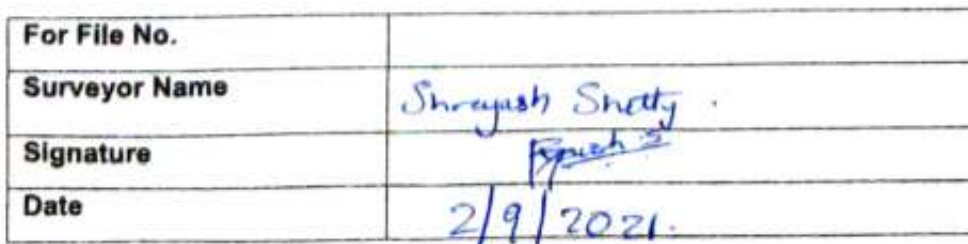 For File No.
Surveyor Name Shreyash Shetty.
Signature
Date 2/9/2021.